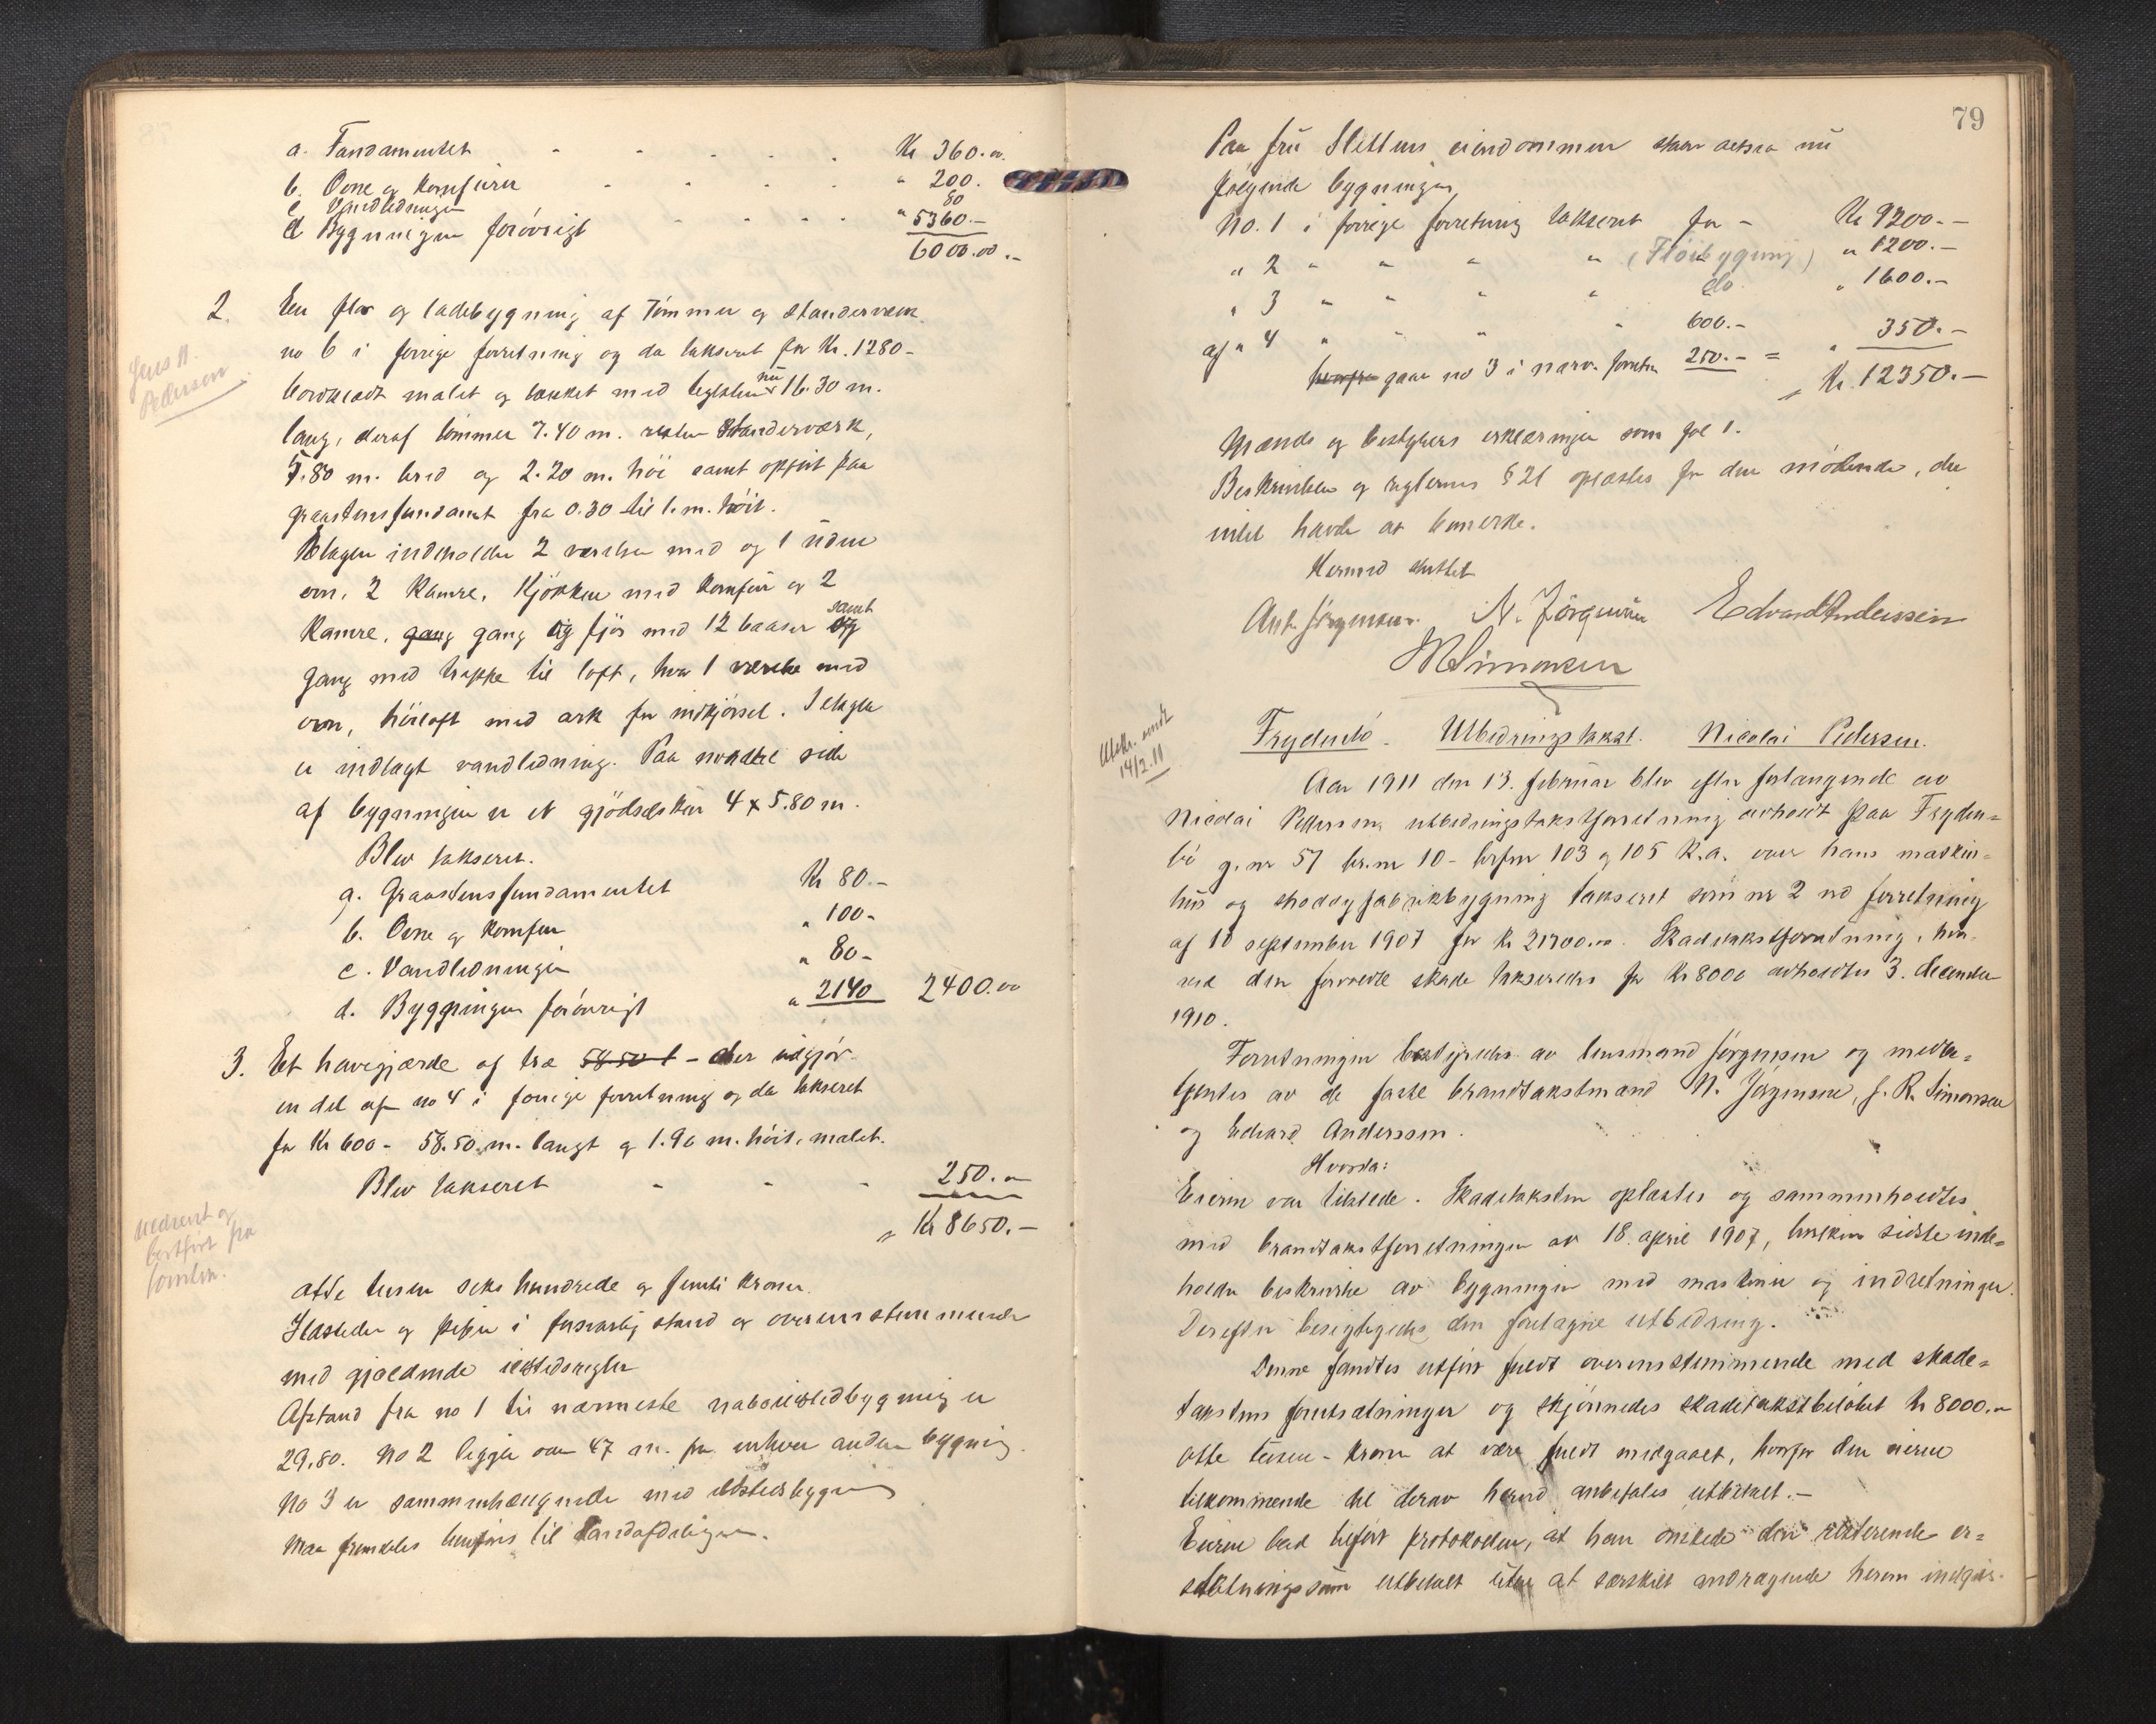 a. Fundamentet - - - - - Kr 360.00
b. Ovne og komfurer - - - - - " 200.
c Vandledningen 80
d Bygningen forövrigt - - - - " 5360.-
6000.00.-
2. En flor og ladebygning af Tömmer og standerverk
no 6 i forrige forretning og da takseret for Kr. 1280-
Jens H.
Pedersen
bordklædt malet og tækket med teglsten nu 16.30 m.
lang, deraf tömmer 7.40 m. resten standerværk,
5.80 m. bred og 2.20 m. höi samt opfört paa
graastensfundament fra 0.30 til 1. m. höit.
Etagen indeholder 2 værelser med og 1 uden
ovn, 2 kamre, Kjökken med komfur og 2
kamre, gang gang og fjös med 12 baaser og samt
gang med trappe til loft, hvor 1 værelse med
ovn, höiloft med ark for indkjörsel. I etagen
er indlagt vandledning. Paa nordre side
af bygningen er et gjödselskur 4 x 5.80 m.
Blev takseret.
a. Graastensfundamentet Kr 80.-
b. Ovne og komfur " 100-
c. Vandledningen " 80-
d. Byggningen forövrigt " 2140 2400.00
3. Et havegjærde af træ 58.50 l - der udgjör
en del af no 4 i forrige forretning og da takseret
for Kr 600- 58.50. m. langt og 1.90 m. höit, malet.
Blev takseret - - - 250.00
Kr 8650.-
nedrevet og
bortfört fra
tomten.
otte tusen seks hundrede og femti kroner.
Ildsteder og piper i forsvarlig stand og overensstemmende
med gjældende ildstedsregler
Afstand fra no 1 til nærmeste naboildstedbygning er
29.80. No 2 ligger over 47 m. fra enhver anden bygning.
No 3 er sammenhængende med ildstedsbygning
Maa fremdeles henföres til landafdelingen.
79
Paa fru Slettens eiendommen staar altsaa nu
fölgende bygninger
No. 1 i forrige forretning takseret for - Kr 9200.-
" 2 " " " " (Flöibygning) " 1200.-
" 3 " " " " do " 1600.-
af " 4 " " " " 600.-
herfra gaar no 3 i nærv. forretn 250.- = " 350.-
Kr. 12350.-
Mænds og bestyrers erklæringer som fol 1.
Beskrivelsen og reglernes § 21 oplæstes for den mödende, der
intet havde at bemerke.
Hermed sluttet
Ant. Jörgensen. N. Jörgensen Edvard Anderssen
J R Simonsen
Utskr. sendt
14/2.11
Frydenbö. Utbedringstakst. Nicolai Pedersen.
Aar 1911 den 13. februar blev efter forlangende av
Nicolai Pedersen utbedringstakstforretning avholdt paa Fryden=
bö g.nr 57 br.nr 10 - brfnr 103 og 105 K.a. over hans maskin=
hus og shoddyfabrikbygning takseret som nr 2 ved forretning
af 18 september 1907 for kr 21700.00. Skadetakstforretning, hvor-
ved den forvoldte skade takseredes for Kr 8000 avholdtes 3. december
1910.
Forretningen bestyredes av lensmand Jörgensen og medta=
gentes av de faste brandtakstmænd N. Jörgensen, J. R. Simonsen
og Edvard Anderssen.
Hvorda:
Eieren var tilstede. Skadetaksten oplæstes og sammenholdtes
med brandtakstforretningen av 18. april 1907, hvilken sidste inde=
holder beskrivelse av bygningen med maskiner og indretninger.
Derefter besigtigedes den foretagne utbedring.
Denne fandtes utfört fuldt overensstemmende med skade=
takstens forutsætninger og skjönnedes skadetakstbelöbet kr 8000.00
otte tusen - kroner at være fuldt medgaaet, hvorfor den eieren
tilkommende del derav herved anbefales utbetalt.-
Eieren bad tilfört protokollen, at han önskede den resterende er=
statningssum utbetalt uten at særskilt andragende herom indgis.